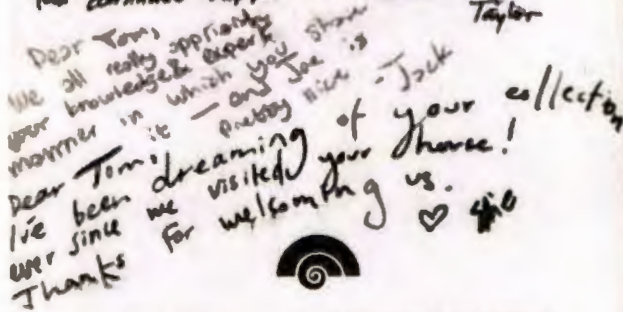 Taylor
Dear Tom,
We all really appreciate
your knowledge & expert
manner in which you share
it — and Joe is
pretty nice - Jack
Dear Tom,
I've been dreaming of your collection
ever since we visited your house!
Thanks for welcoming us.